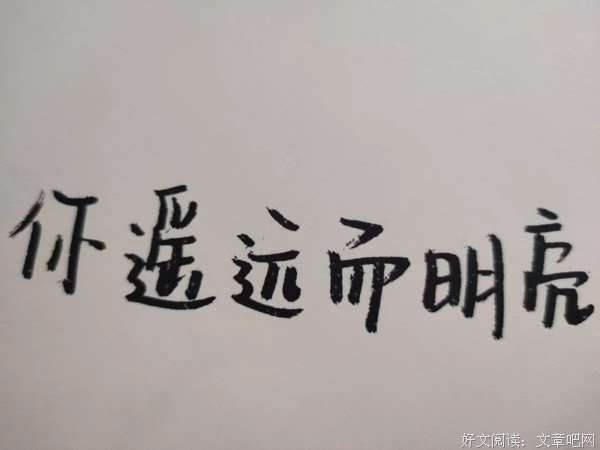 你遥远而明亮
好文阅读：文章吧网